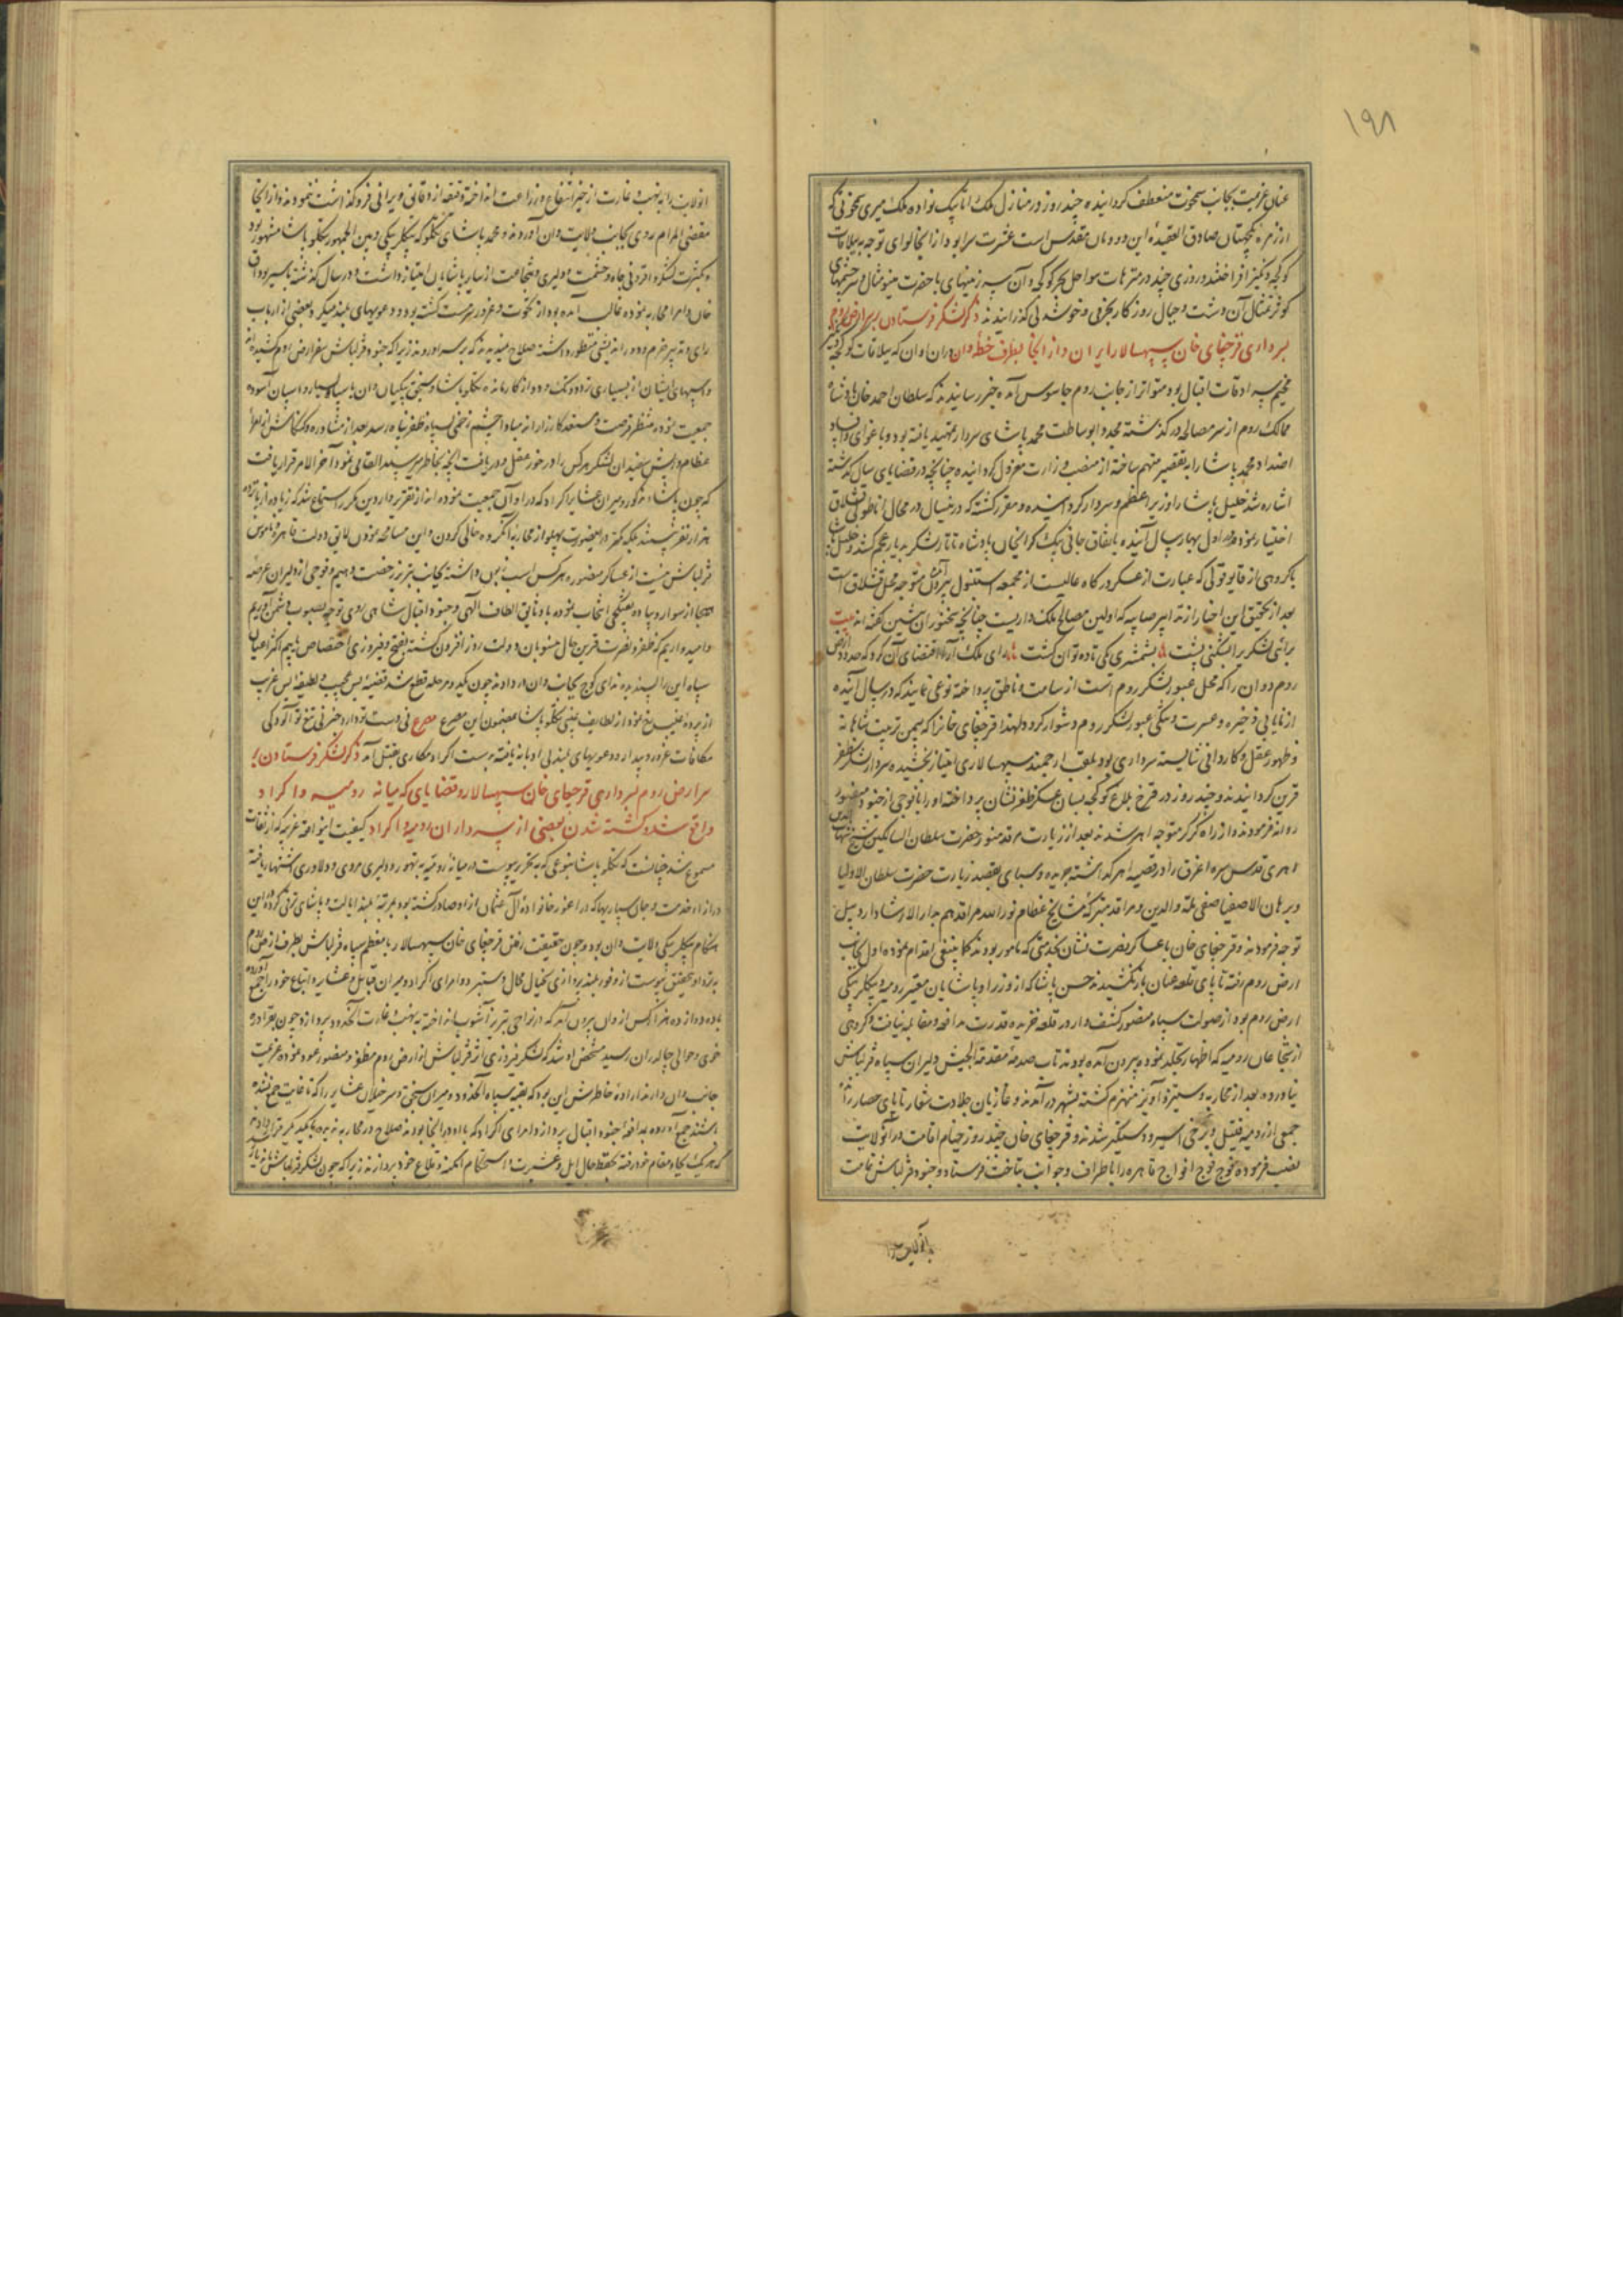 ۱۹۸
عنان عزیمت بجانب سخوت منعطف گردانیده چند روز در منازل ملک اتابیک نواده ملک میری سخوتی که
از زمره یکجهتان صادق العقیده این دودمان مقدس است عشرت سرا بود از انجا لوای توجه به ییلاقات
کوکجه دنکیز افراختند و روزی چند در متنزهات سواحل بحر کوکجه و آن سرزمینهای با خضرت مینو مثال و سرچشمهای
کوثر تمثال آن دشت و جبال روزگار بخرمی و خوشدلی گذرانیدند ذکر لشکر فرستادن بر سر ارض روم
بسرداری قرچغای خان سپهسالار ایران و از انجا بطرف خطه وان در ان اوان که ییلاقات کوکجه دنکیز
مخیم سرادقات اقبال بود متواتر از جانب روم جاسوس آمده خبر رسانیدند که سلطان احمد خان پادشاه
ممالک روم از سر مصالحه در گذشته مجددا بوساطت محمد پاشای سردار تمهید یافته بود و باغوای و افساد
اضداد محمد پاشا را به تقصیر متهم ساخته از منصب وزارت معزول گردانیده چنانچه در قضایای سال گذشته
اشاره شد خلیل پاشا را وزیر اعظم و سردار گردانیده و مقرر گشته که درینسال در محال اناطولی قشلاق
اختیار نموده اول بهار سال آینده باتفاق جانی بیک کرای خان پادشاه تاتار لشکر بدیار عجم کشد و خلیل پاشا
با گروهی از قاپو قولی که عبارت از عسکر درگاه عالیست از مجمعه استنبول بیرون آمده متوجه محل قشلاق است
بعد از تحقیق این اخبار از تدابیر صایبه که اولین مصالح ملک داریست چنانچه سخنوران پیشین گفته اند بیت
برائی لشکری را بشکنی پشت بشمشیری یکی تا ده توان کشت رای ملک آرا اقتضای آن کرد که حدود ارض
روم و وان را که محل عبور لشکر روم است از صامت و ناطق پرداخته نوعی نمایند که در سال آینده
از نایابی ذخیره و عسرت و تنگی عبور لشکر روم دشوار گردد لهذا قرچغای خانرا که بیمن تربیت شاهانه
و ظهور عقل و کاردانی شایسته سرداری بود بلقب ارجمند سپهسالاری امتیاز بخشیده سردار لشکر ظفر
قرین گردانیدند و چند روز در فرخ بلاغ کوکجه بسان عسکر ظفر نشان پرداخته او را با فوجی از جنود منصور
روانه فرمودند و از راه کرکر متوجه اهر شدند بعد از زیارت مرقد منور حضرت سلطان السالکین شیخ شهاب الدین
اهری قدس سره اغرق را در قصبه اهر گذاشته جریده و سبای بقصد زیارت حضرت سلطان الاولیا
و برهان الاصفیا صفی الملة والدین و مراقد متبرکه مشایخ عظام نور الله مراقدهم بدار الارشاد اردبیل
توجه فرمودند و قرچغای خان با عساکر نصرت نشان بخدمتی که مامور بودند کما ینبغی اقدام نموده اول بجانب
ارض روم رفته تا پای قلعه عنان باز نکشیدند حسن پاشا که از وزرا و پاشایان معتبر رومیه و بیکلربیکی
ارض روم بود از صولت سپاه منصور کشف وار در قلعه خزیده قدرت مدافعه و مقابله نیافت و گروهی
از شجاعان رومیه که اظهار تجلد نموده بیرون آمده بودند تاب صدمه مقدمة الجیش دلیران سپاه قزلباش
نیاورده بعد از محاربه و ستیز و آویز منهزم گشته بشهر درآمدند و غازیان جلادت شعار تا پای حصار رانده
جمعی از رومیه قتیل و برخی اسیر و دستگیر شدند و قرچغای خان چند روز خیام اقامت در آنولایت
نصب فرموده فوج فوج افواج قاهره را باطراف و جوانب بتاخت فرستاد و جنود قزلباش تمامت
آنولایت را
انولایت را به نهب و غارت از حیز انتفاع و زراعت انداخته دقیقه از دقایق ویرانی فروگذاشت ننمودند و از انجا
مقضی المرام روی بجانب ولایت وان آوردند و محمد پاشای تکلو که بیکلربیکی و بین الجمهور بتکلو پاشا مشهور بود
و بکثرت لشکر و افزونی جاه و حشمت و دلیری و شجاعت از سایر پاشایان امتیاز داشت و در سال گذشته با پیربوداق
خان و امرا محاربه نموده غالب آمده بود از نخوت و غرور سرمست گشته بود و دعویهای بلند میکرد بعضی از ارباب
رای و تدبیر حزم و دوراندیشی منظور داشته صلاح ندیدند که بر سر او روند زیرا که جنود قزلباش سفر ارض روم کشیده اند
و اسپهای ایشان از بسیاری تردد و تک و دو از کار مانده و تکلو پاشا و سنجق بیکیان وان با سپاه بسیار و اسپان آسوده
جمعیت نموده منتظر فرصت و مستعد کارزارند مبادا چشم زخمی بسپاه ظفر پناه رسد بعد از مشاوره و کنکاش امراء
عظام و ریش سفیدان لشکر هر کس را در خور عقل و دریافت آنچه بخاطر میرسید القا می نمود آخر الامر قرار یافت
که چون پاشاء مذکور و میران عشایر اکراد که در او آن جمعیت نموده اند از تقریر واردین مکرر استماع شد که زیاده از پانزده
هزار نفر نیستند بلکه کمتر درینصورت پهلو از محاربه آنگروه خالی کردن و این مسامحه نمودن لایق دولت قاهره و ناموس
قزلباش نیست از عساکر منصوره هر کس اسب زبون داشته بجانب تبریز رخصت دهیم و فوجی از دلیران عرصه
هیجا از سوار و پیاده تفنگچی انتخاب نموده باوثاق الطاف الهی و جنود اقبال شاهی روی توجه بصوب دشمن آوریم
و امیدواریم که ظفر و نصرت قرین حال منسوبان دولت روز افزون گشته بفتح و فیروزی اختصاص یابیم اکثر اعیان
سپاه این رای پسندیده ندای کوچ بجانب وان در دادند چون یکدو مرحله قطع شد قضیه بس عجیب و لطیفه بس غریب
از پرده غیب رخ نمود از لطایف غیبی تکلو پاشا مضمون این مصرع مصرع نی دست تو دارد خبر نی تیغ تو آلودگی
مکافات غرور و پندار و دعویهای بلند لی ادبانه یافته بدست اکراد مکاری بقتل آمد ذکر لشکر فرستادن بر
سر ارض روم بسرداری قرچغای خان سپهسالار و قضایای که میانه رومیه و اکراد
واقع شده کشته شدن بعضی از سرداران رومیه و اکراد کیفیت اینواقعه غریبه که از ثقات
مسموع شد چنانست که تکلو پاشا بنوعی که به تحریر پیوست در میانه رومیه به تهور و دلیری و مردی و دلاوری اشتهار یافته
در ازاء خدمت و جان سپاریها که در اعزر خانواده آل عثمان ازو صادر گشته بود بمرتبه بلند ایالت و پاشای ترقی کرده در این
هنگام بیکلربیکی ولایت وان بود و چون حقیقت رفتن قرچغای خان سپهسالار با معظم سپاه قزلباش بطرف ارض روم
نزد او بتحقیق پیوست از وفور بلند پروازی بخیال محال دستبرد و امرای اکراد و میران قبایل و عشایر و اتباع خود را جمع آورده
با ده دوازده هزار کس از وان بیرون آمد که در نواحی تبریز آشوب انداخته به نهب و غارت آنحدود پردازد و چون بقرا دره
خوی و حوالی چالدران رسید مشخص او شد که لشکر فیروزی اثر قزلباش از ارض روم مظفر و منصور عود نموده عزیمت
جانب وان دارند اراده خاطرش این بود که بقیه سپاه آنحدود و میران سنجق و سرخیلان عشایر را که تا غایت جمع نشده
باشند جمع آورده بمدافعه جنود اقبال پردازد و امرای اکراد که با او در انجا بودند صلاح در محاربه ندیده با یکدیگر قرار دادند
که هر یک بجا و مقام خود رفته بحفظ حال ایل و عشیرت و استحکام امکنه و قلاع خود پردازند زیرا که چون لشکر قزلباش